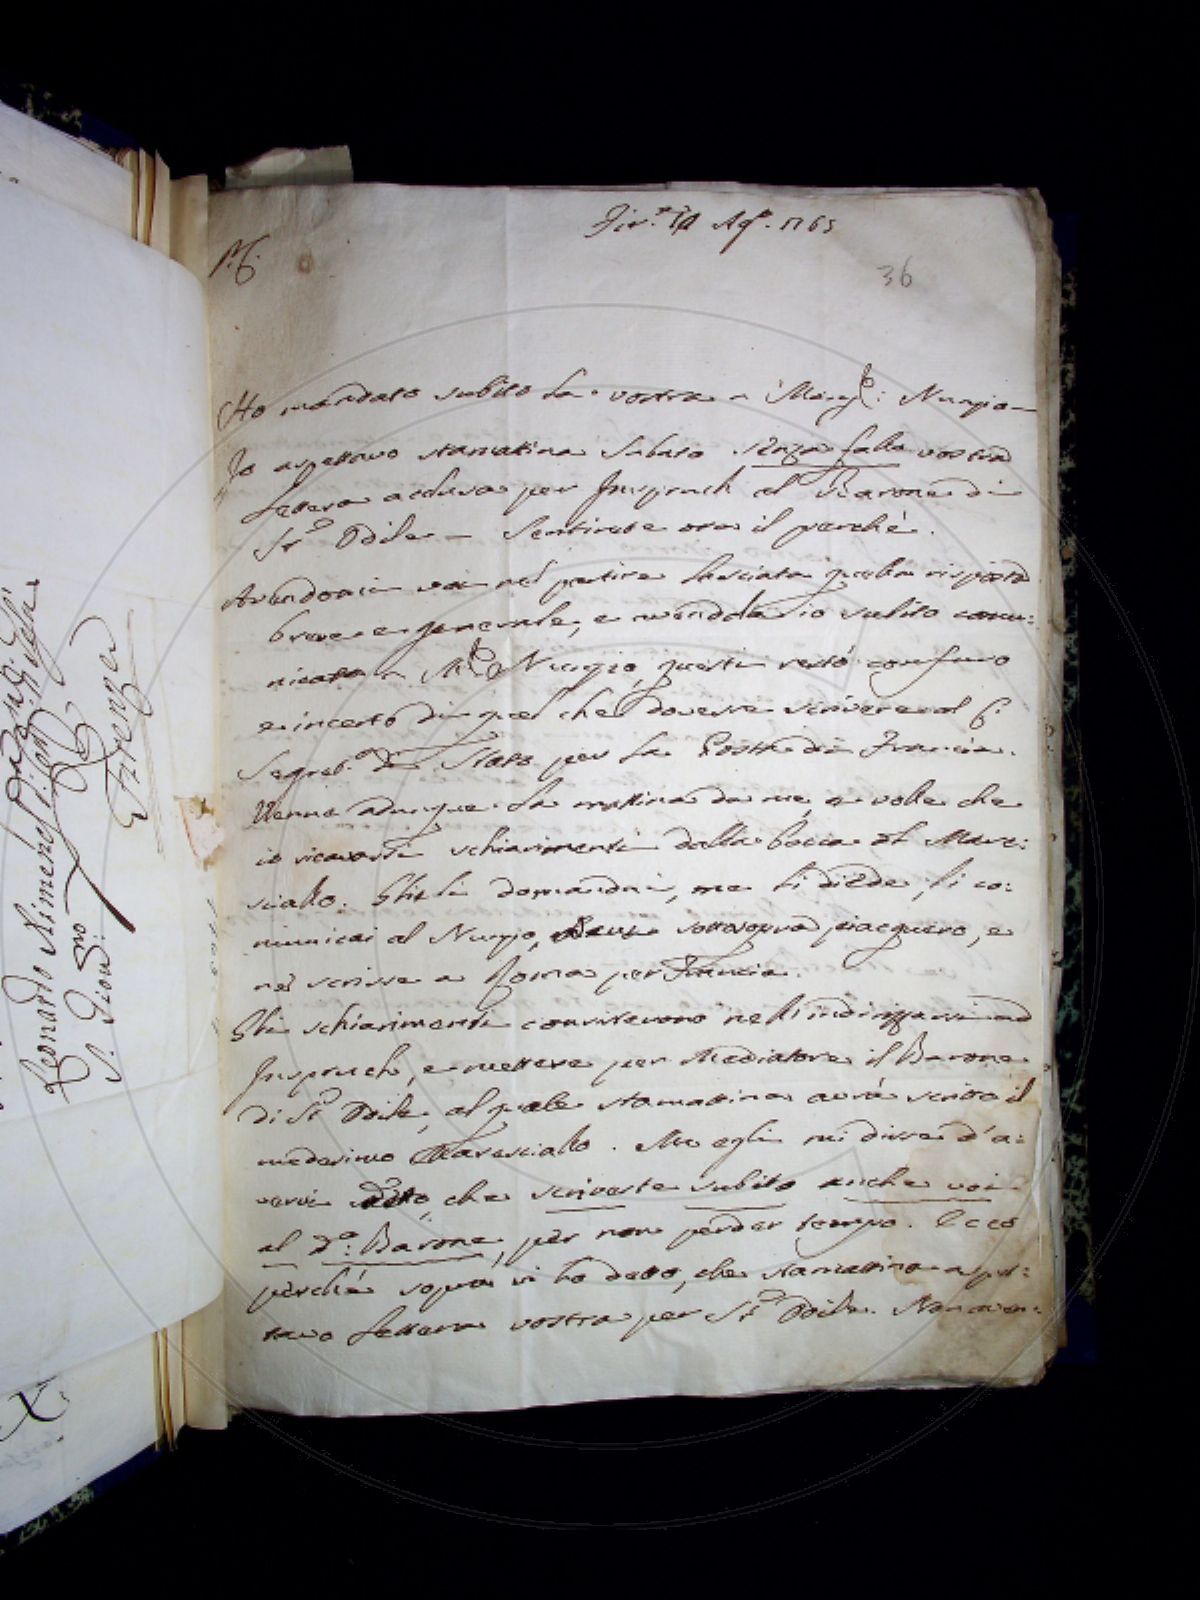 Fir.e Agο. 1765
P.C.
36
Ho mandato subito la vostra a Monsig.r: Nunzio
Io aspettavo stamattina Sabato senza fallo vostra
lettera acclusa per Inspruch al Barone di
S.t Odile — Sentirete ora il perchè.
Avendomi voi nel partire lasciata quella risposta
breve e generale, e mandola io subito comu:
nicata a M.r Nunzio, questi restò confuso
e incerto di quel che dovesse scrivere al C.
Segret.o di Stato per la Posta di Francia.
Venne adunque la mattina da me, e volle che
io ricavassi schiarimenti dalla bocca del Mare:
sciallo. Gli li domandai, me li diede, li co:
municai al Nunzio, sottosopra piacquero, e
ne scrisse a Roma per Francia.
Gli schiarimenti consistevono nell'indirizzarvi ad
Inspruch, e mettere per Mediatore il Barone
di S.t Odile, al quale stamattina avrà scritto il
medesimo Maresciallo. Me egli mi disse d'a:
vervi detto, che scriveste subito anche voi
al d.o: Barone, per non perder tempo. Ecco
perchè sopra vi ho detto, che stamattina aspet:
tavo lettera vostra per S.t Odile. Non aven:
Leonardo Ximenes
S. Giov:
Firenze
X.